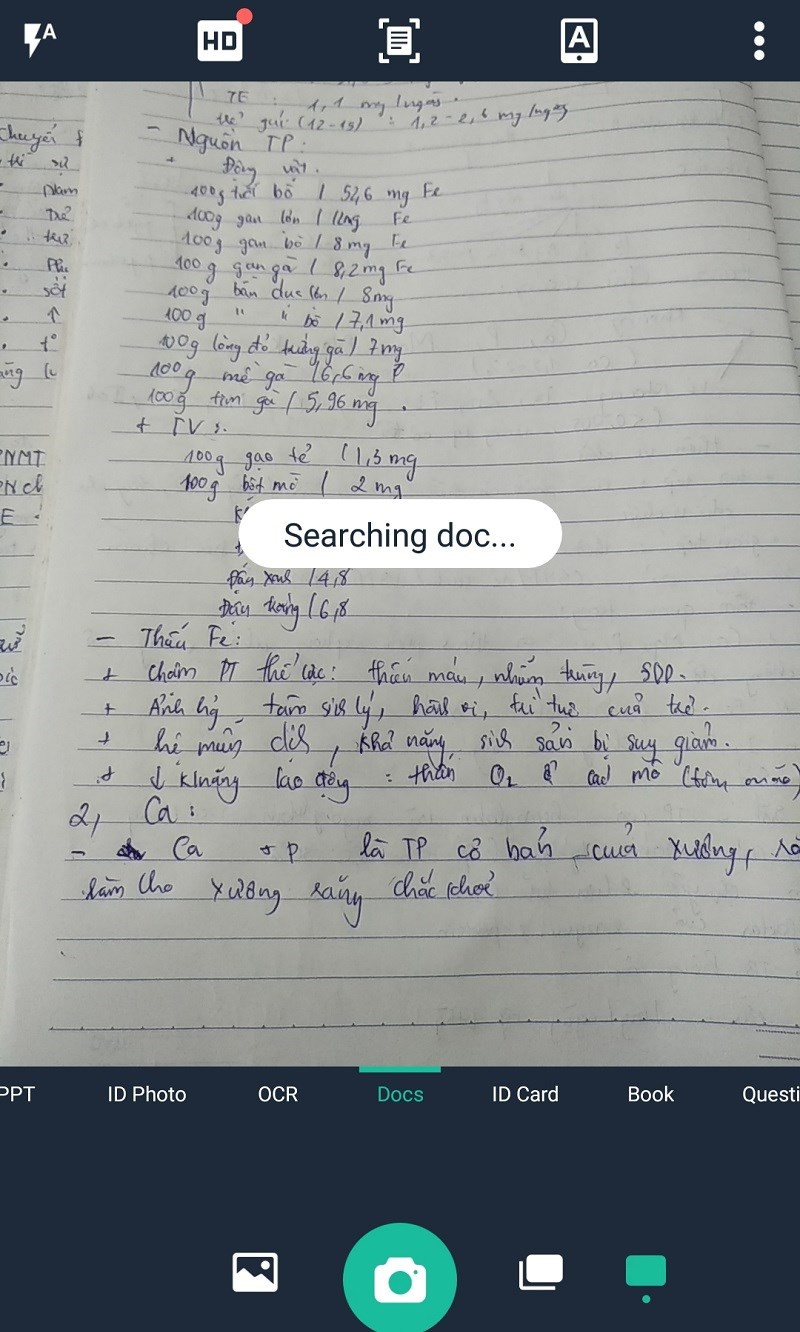 A
HD
A
TE : 1,1 mg/ngày.
gái (12-15) : 1,2-2,6 mg/ngày
- Nguồn TP:
+ Động vật.
100g tiết bò / 52,6 mg Fe
100g gan lợn / 12mg Fe
100g gan bò / 8mg Fe
100g gan gà / 8,2mg Fe
100g bầu dục lợn / 8mg
100g " " bò / 7,1 mg
100g lòng đỏ trứng gà / 7mg
100g mề gà / 6,6mg
100g tim gà / 5,96 mg.
+ TV:
100g gạo tẻ / 1,3 mg
100g bột mì / 2 mg
Searching doc...
Đậu xanh / 4,8
Đậu trắng / 6,8
- Thiếu Fe:
+ Chậm PT thể lực: thiếu máu, nhiễm trùng, SDD.
+ Ảnh hg tâm sinh lý, hành vi, trí tuệ của trẻ.
+ hệ miễn dịch, khả năng sinh sản bị suy giảm.
+ ↓ khả năng lao động : thiếu O2 ở các mô
2, Ca:
- Ca + P là TP cơ bản của xương,
làm cho xương răng chắc khoẻ
Chuyển
Nam
Trẻ
sốt
NMT
PPT
ID Photo
OCR
Docs
ID Card
Book
Questi